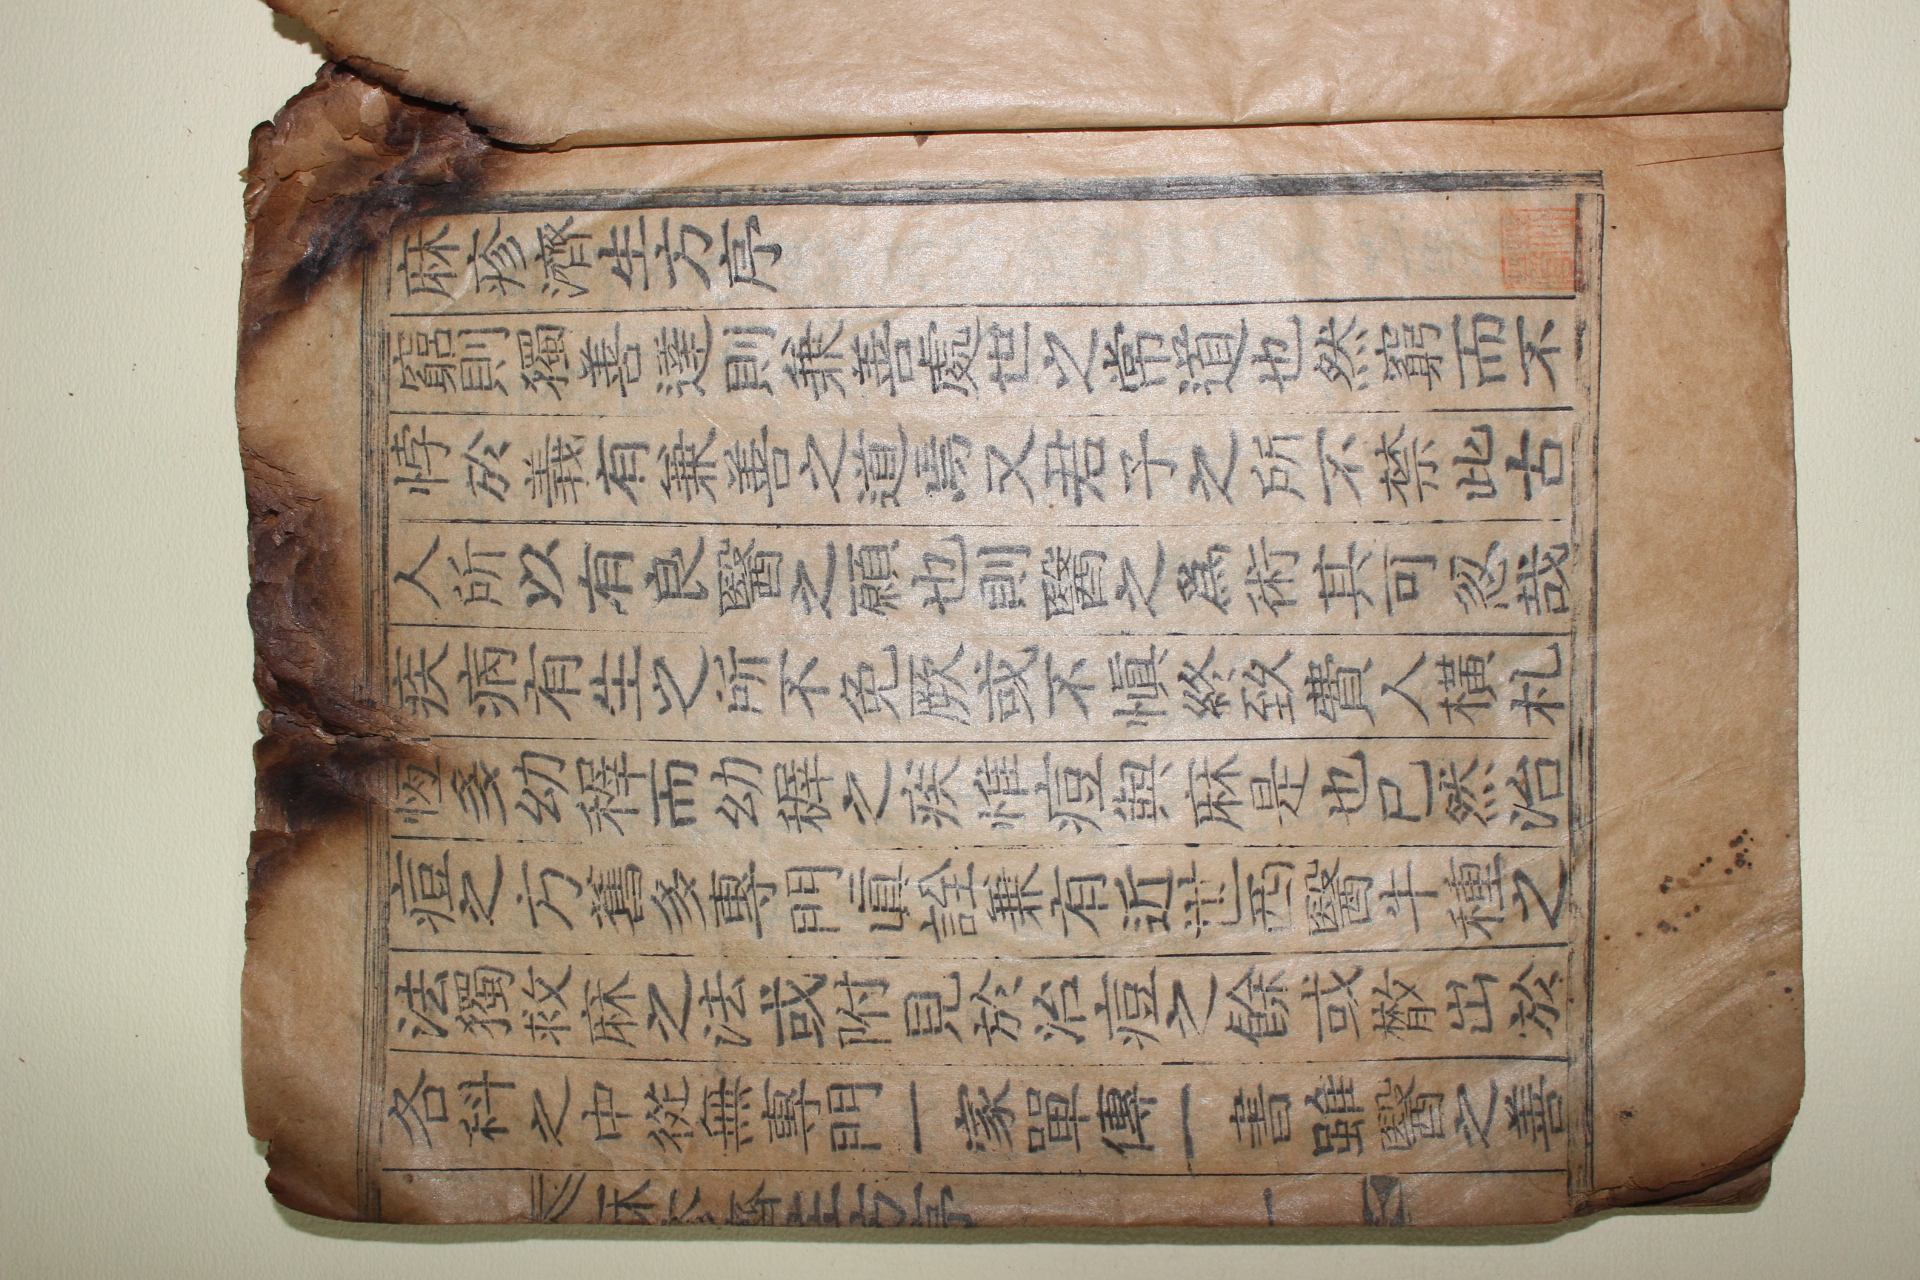 麻疹濟生方序
窮則獨善達則兼善處世之常道也然窮而不
悖於義有兼善之道焉又君子之所不禁此古
人所以有良醫之願也則醫之爲術其可忽哉
疾病有生之所不免厥或不愼終致費人橫札
恆多幼穉而幼穉之疾惟痘與麻是也已然治
痘之方舊多專門眞詮兼有近世西醫牛種之
法獨救麻之法或附見於治痘之餘或散出於
各科之中從無專門一家單傳一書雖醫之善
麻疹濟生方序 一